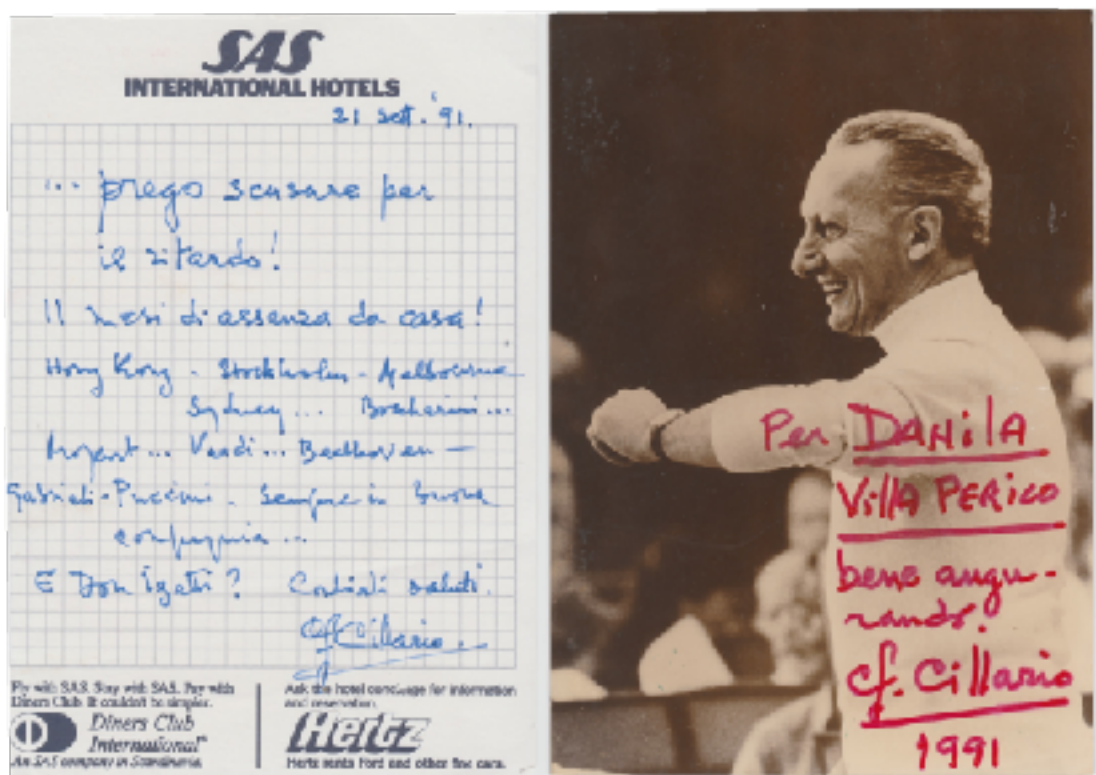 SAS
INTERNATIONAL HOTELS
21 Sett. '91.
... prego scusare per
il ritardo!
11 mesi di assenza da casa!
Hong Kong - Stockholm - Melbourne
Sydney ... Boccherini ...
Mozart ... Verdi ... Beethoven -
Gabrieli - Puccini. Sempre in buona
compagnia ...
E Donizetti? Cordiali saluti.
Cf Cillario
Fly with SAS. Stay with SAS. Pay with
Diners Club. It couldn't be simpler.
Diners Club
International®
An SAS company in Scandinavia.
Ask the hotel concierge for information
and reservation.
Hertz
Hertz rents Ford and other fine cars.
Per DANilA
Villa PERico
bene augu-
rando!
Cf. Cillario
1991